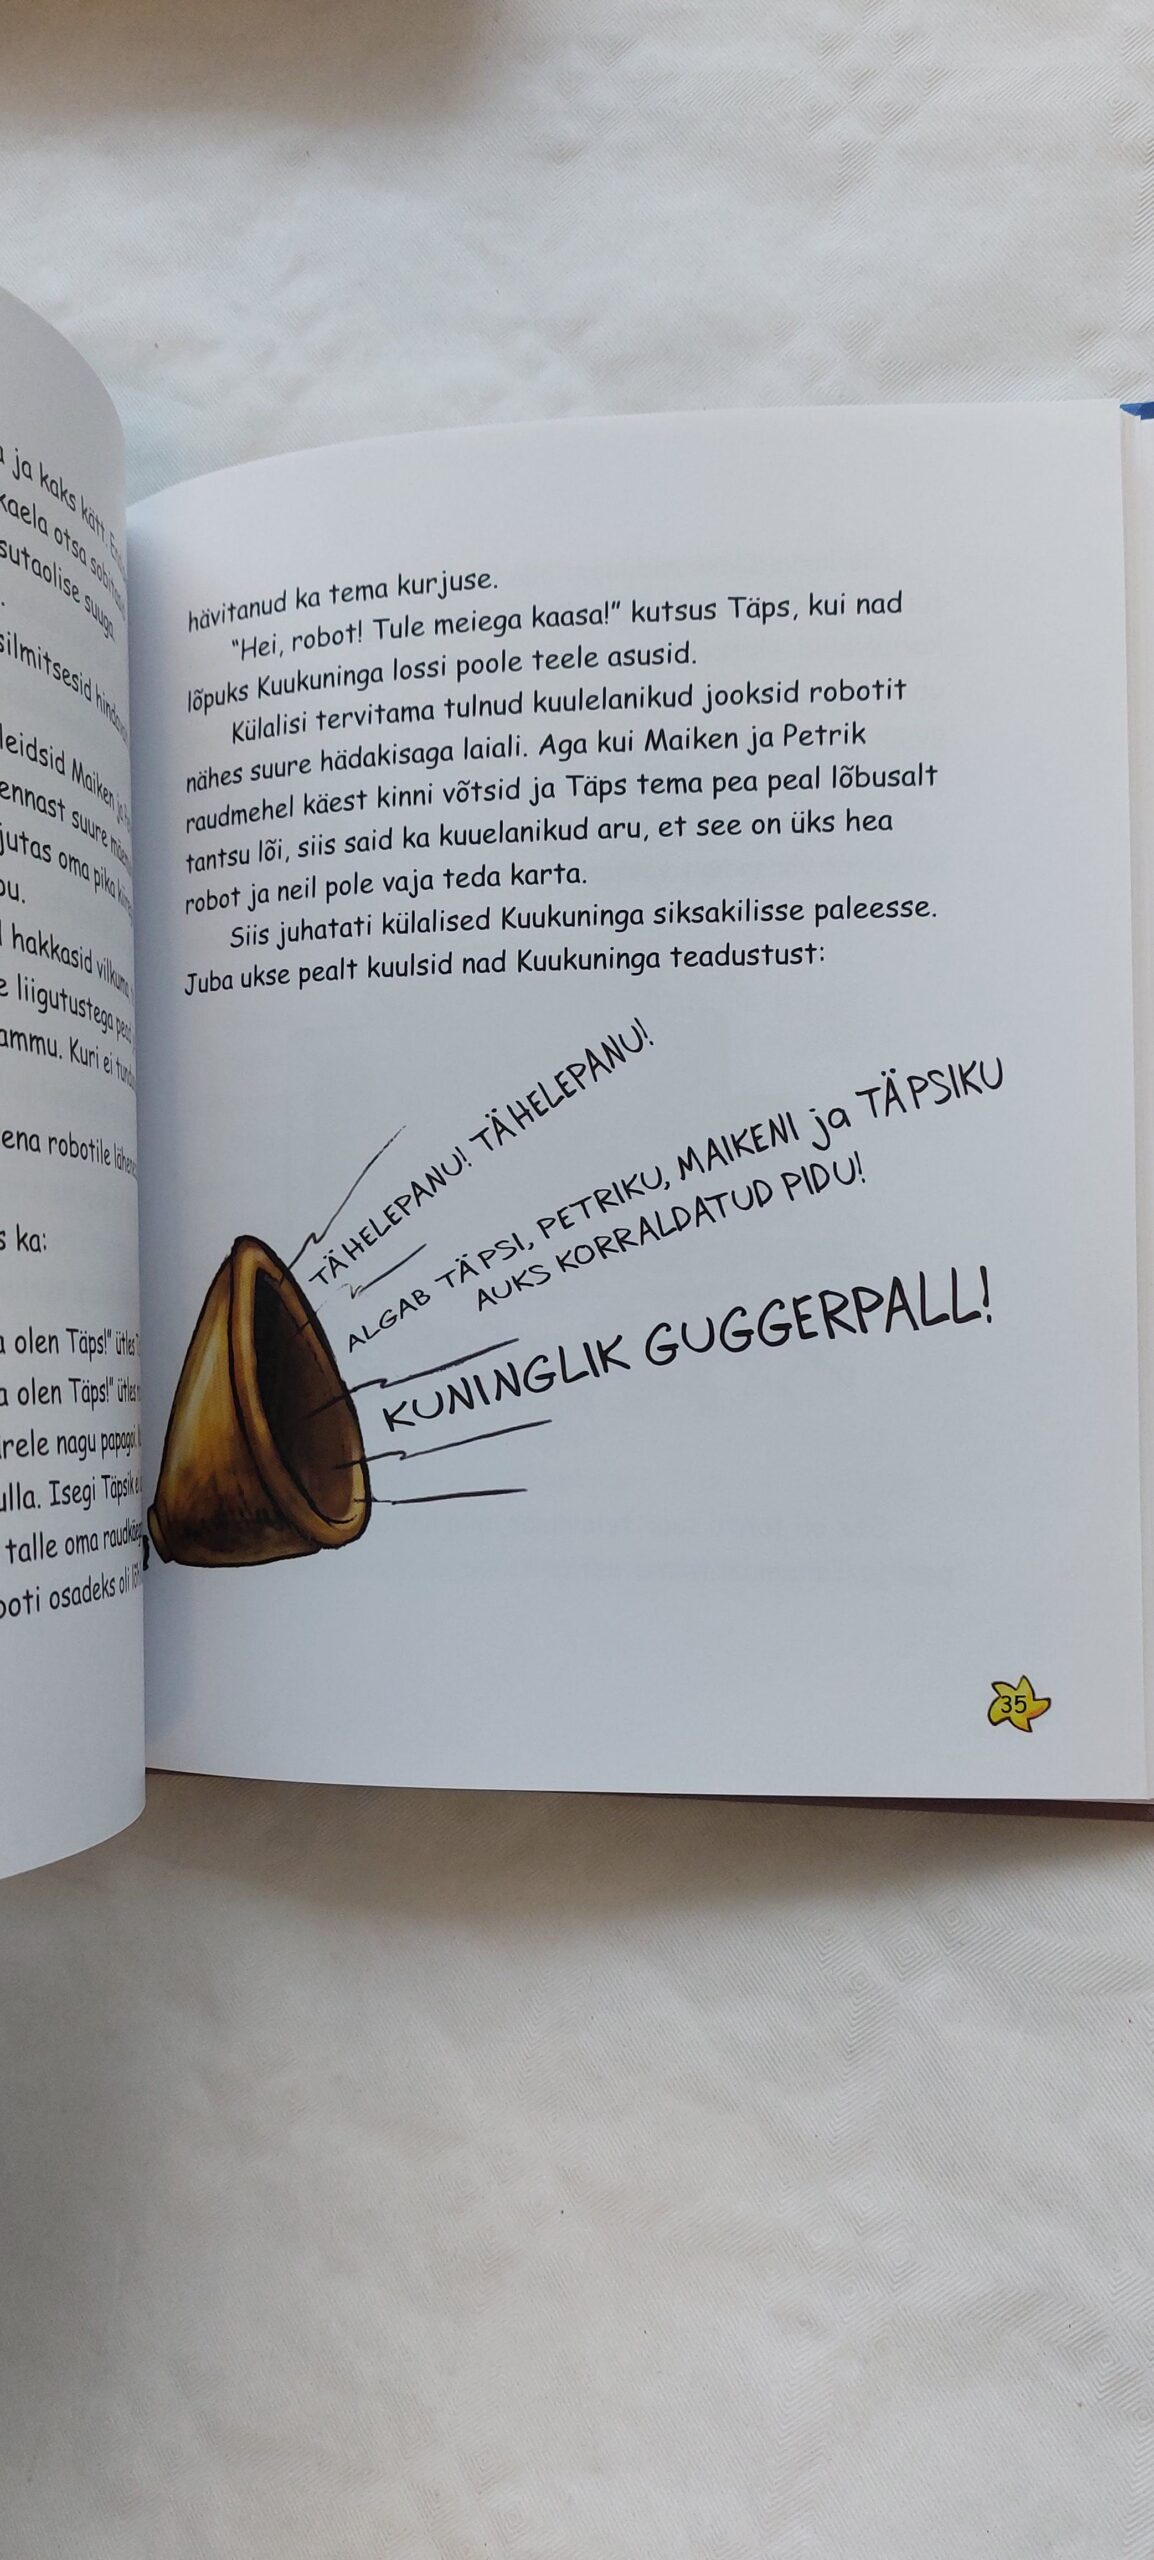 ja kaks kätt.
kaela otsa
sutaolise suuga
silmitsesid
leidsid Maiken
ennast suure
jutas oma pika
hakkasid vilkuma
liigutustega
ammu. Kuri ei
robotile
ka:
olen Täps!" ütles
olen Täps!" ütles
nagu papagoi
Isegi Täpsik
talle oma
osadeks oli
hävitanud ka tema kurjuse.
"Hei, robot! Tule meiega kaasa!" kutsus Täps, kui nad
lõpuks Kuukuninga lossi poole teele asusid.
Külalisi tervitama tulnud kuulelanikud jooksid robotit
nähes suure hädakisaga laiali. Aga kui Maiken ja Petrik
raudmehel käest kinni võtsid ja Täps tema pea peal lõbusalt
tantsu lõi, siis said ka kuuelanikud aru, et see on üks hea
robot ja neil pole vaja teda karta.
Siis juhatati külalised Kuukuninga siksakilisse paleesse.
Juba ukse pealt kuulsid nad Kuukuninga teadustust:
TÄHELEPANU! TÄHELEPANU!
ALGAB TÄPSI, PETRIKU, MAIKENI ja TÄPSIKU
AUKS KORRALDATUD PIDU!
KUNINGLIK GUGGERPALL!
35